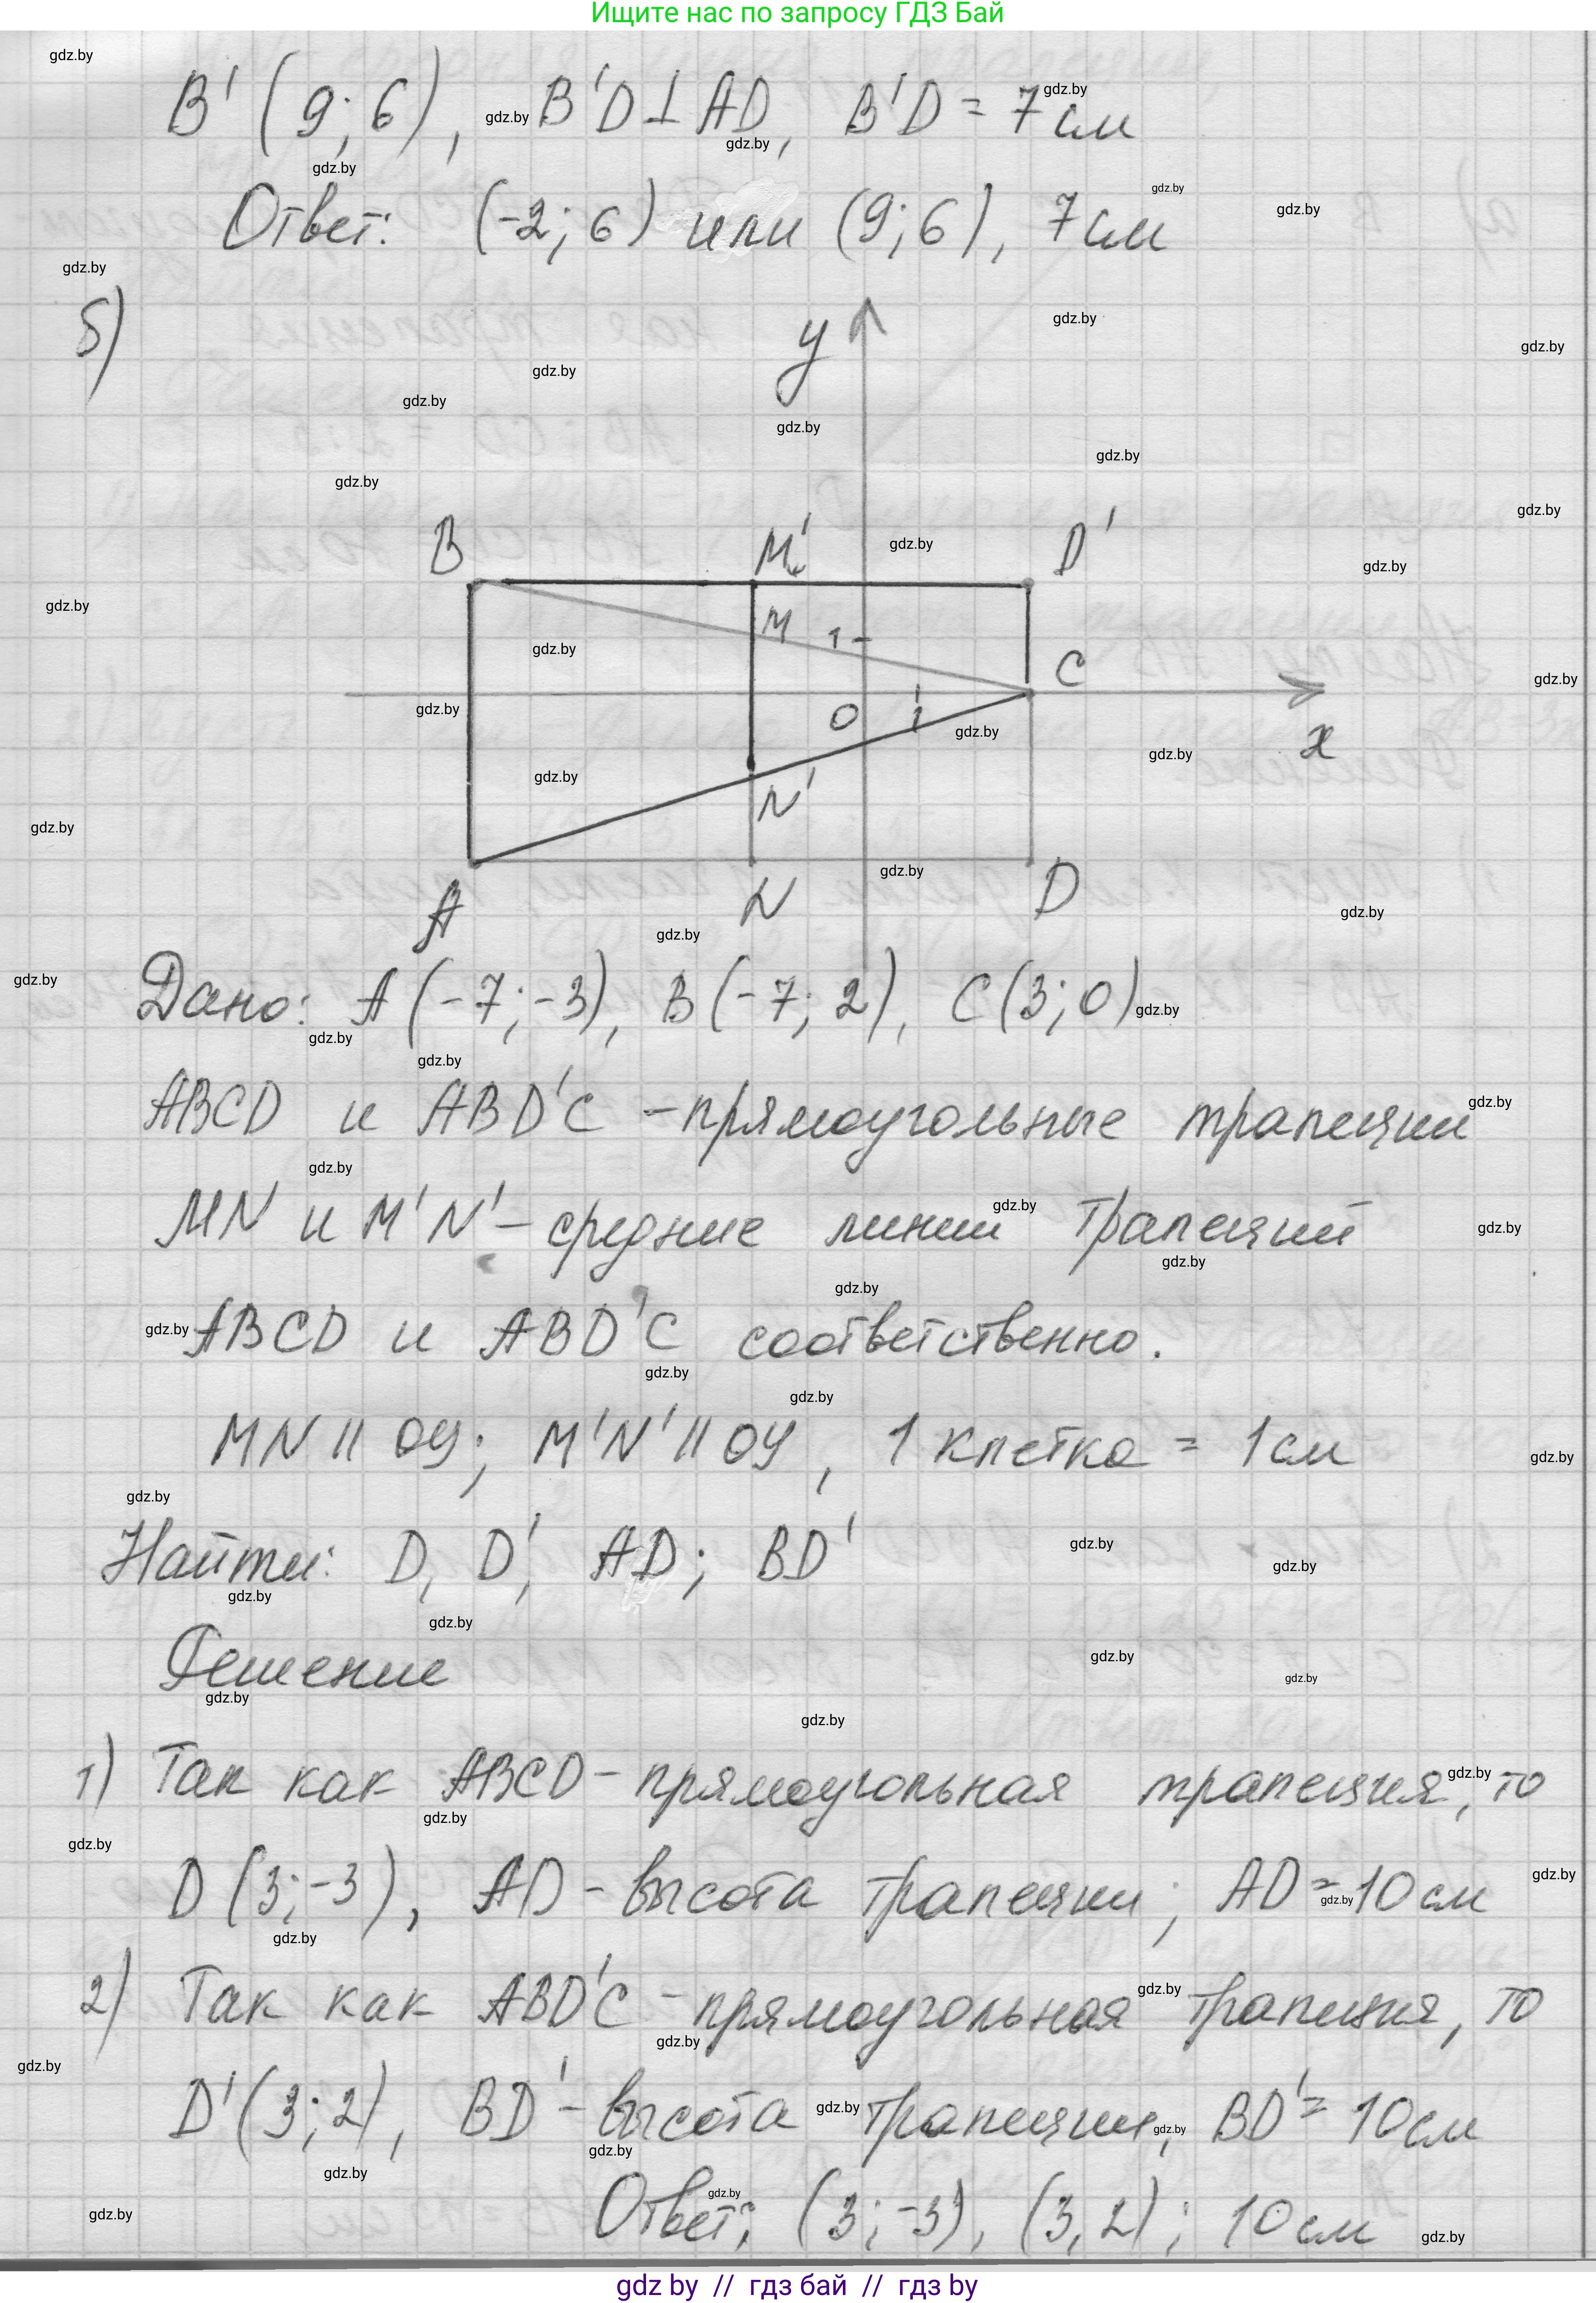 Ищите нас по запросу ГДЗ Бай
B' (9; 6), B'D ⊥ AD, B'D = 7 см
Ответ: (-2; 6) или (9; 6), 7 см
б)
y
B M' D'
M 1
C
O 1
x
N'
A N D
Дано: A (-7; -3), B (-7; 2), C (3; 0)
ABCD и ABD'C - прямоугольные трапеции
MN и M'N' - средние линии трапеций
ABCD и ABD'C соответственно.
MN || OY; M'N' || OY, 1 клетка = 1 см
Найти: D, D', AD; BD'
Решение
1) Так как ABCD - прямоугольная трапеция, то
D (3; -3), AD - высота трапеции; AD = 10 см
2) Так как ABD'C - прямоугольная трапеция, то
D' (3; 2), BD' - высота трапеции, BD' = 10 см
Ответ: (3; -3), (3, 2); 10 см
gdz by // гдз бай // гдз by